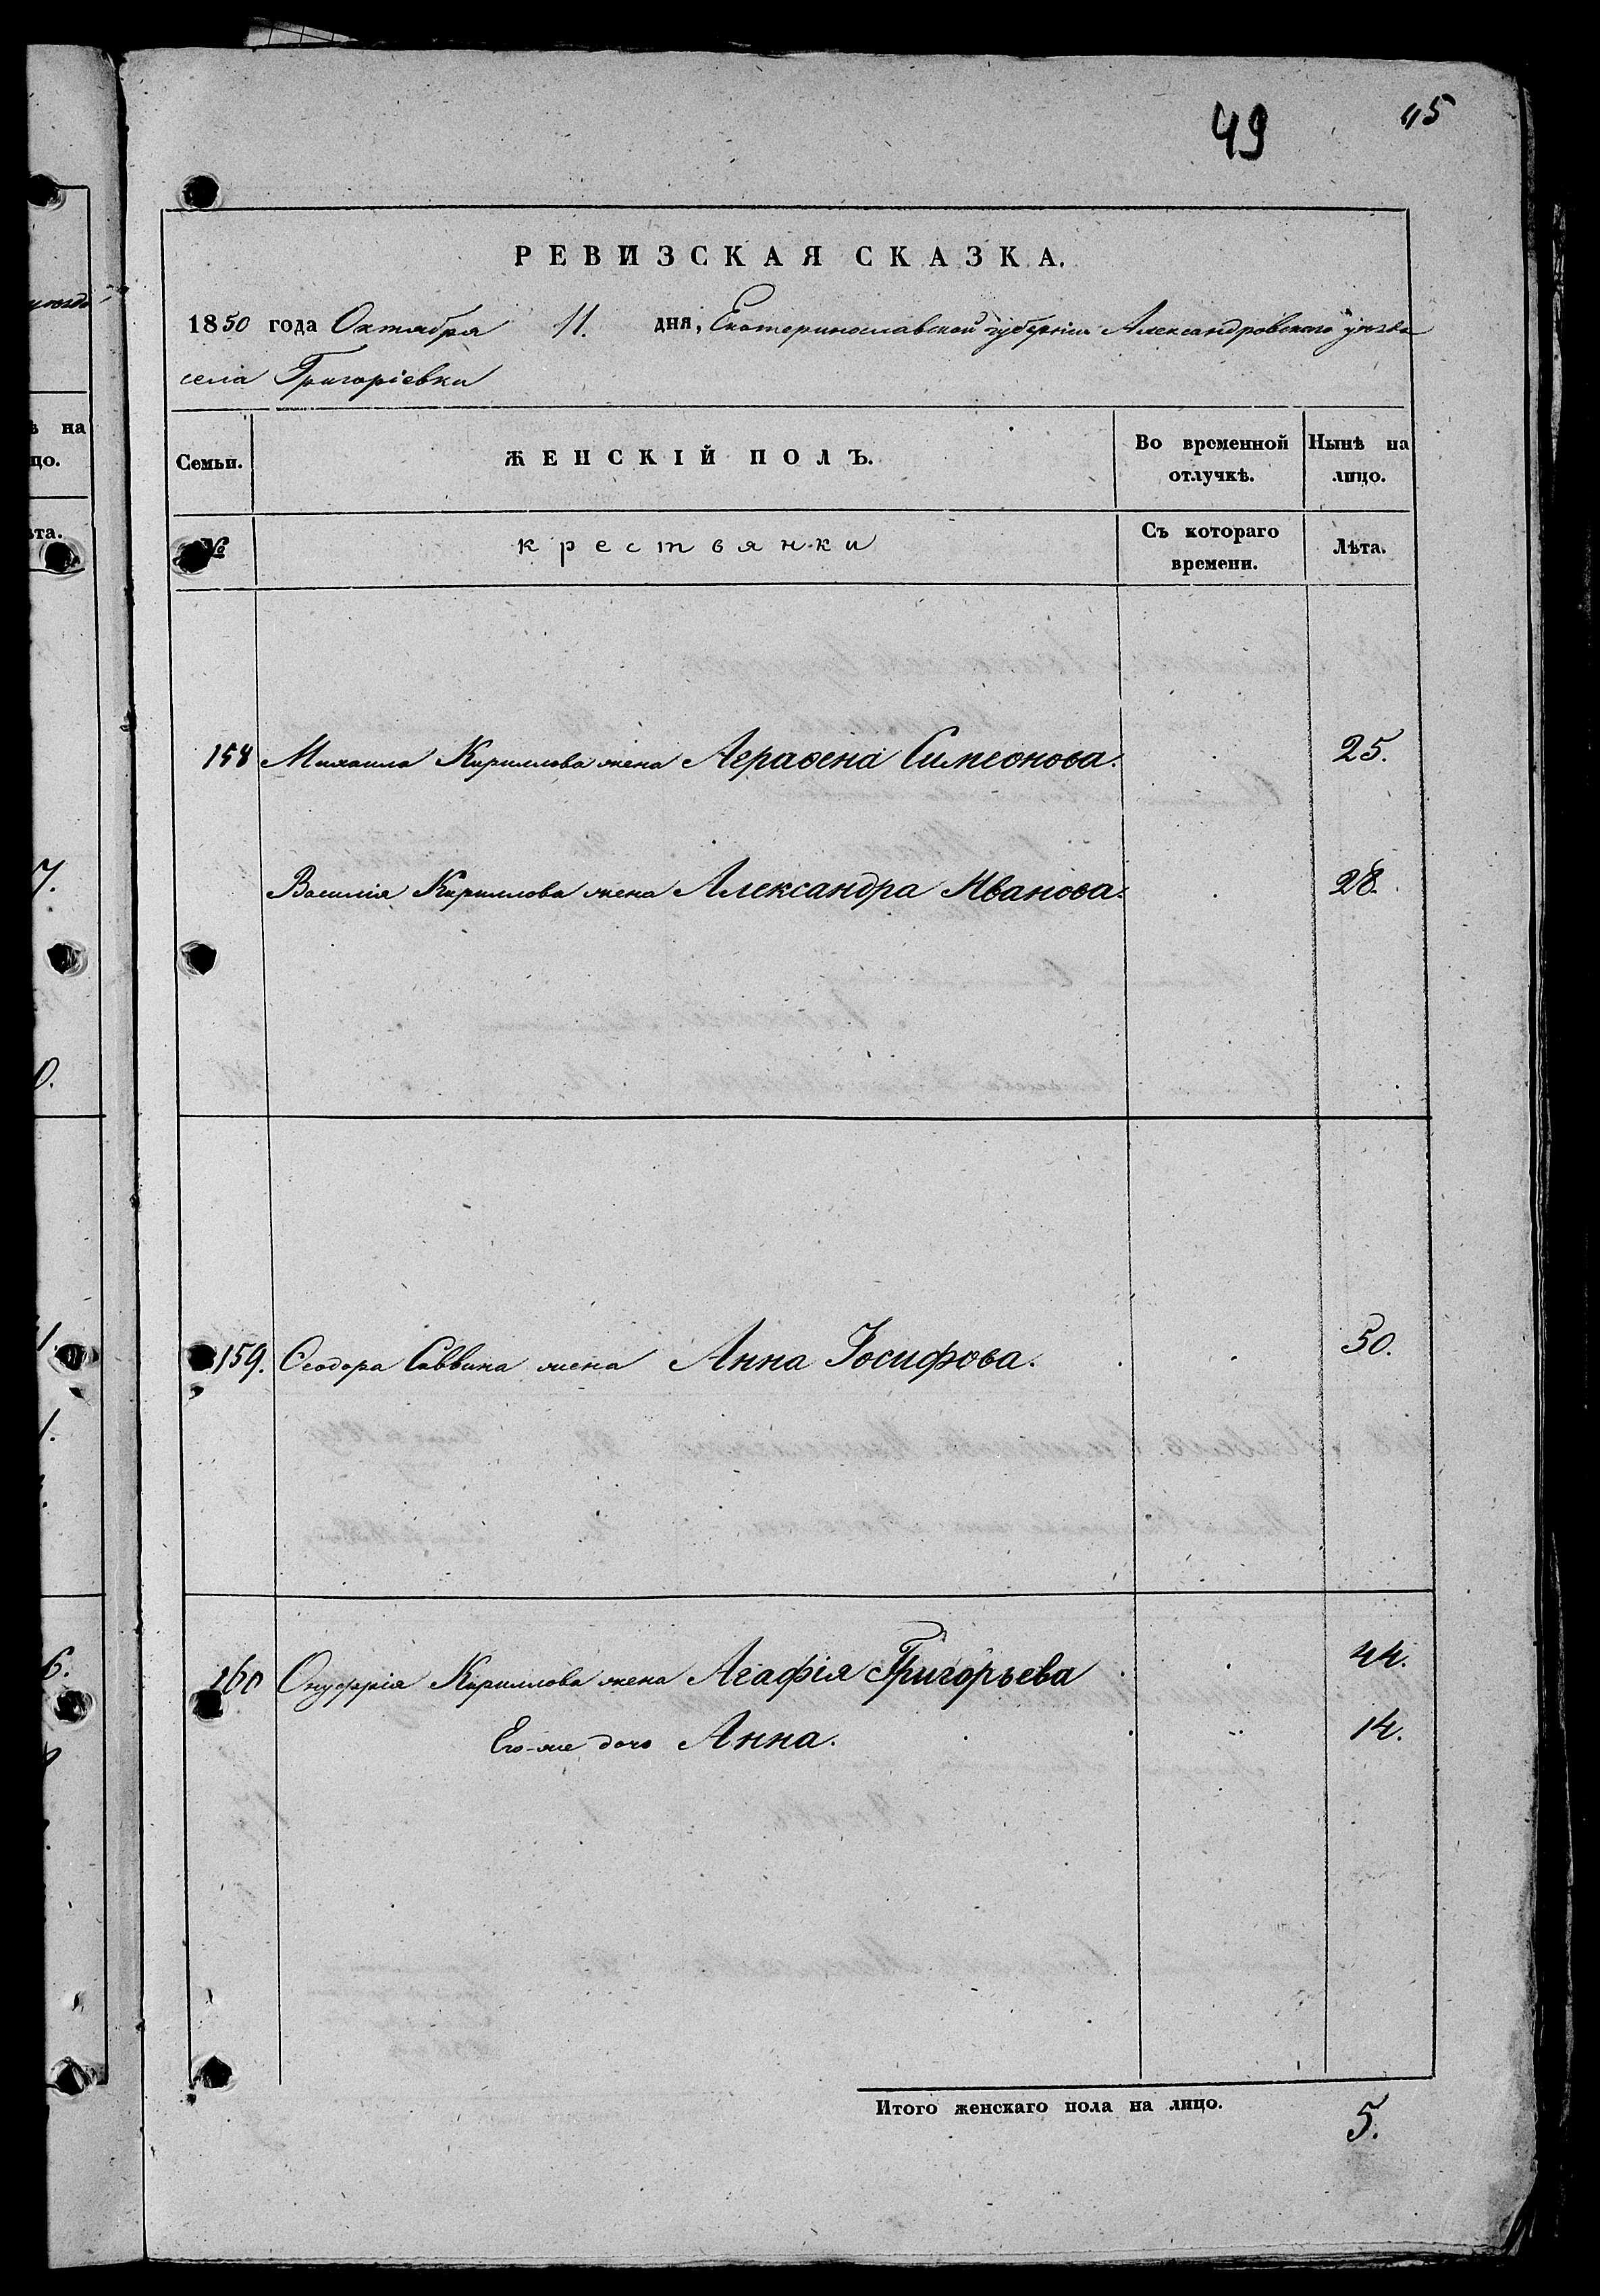 49 45
РЕВИЗСКАЯ СКАЗКА.
1850 года Октября 11. дня, Екатеринославской губерніи Александровскаго уѣзда
села Григоріевки
Семьи. ЖЕНСКІЙ ПОЛЪ. Во временной отлучкѣ. Нынѣ на лицо.
№ крестьянки Съ котораго времени. Лѣта.
158 Михаила Кириллова жена Аграѳена Симеонова. 25.
Василія Кириллова жена Александра Иванова. 28.
159. Ѳеодора Саввина жена Анна Іосифова. 50.
160 Онуфрія Кириллова жена Агафія Григорьева 44.
Его-же дочь Анна. 14.
Итого женскаго пола на лицо. 5.